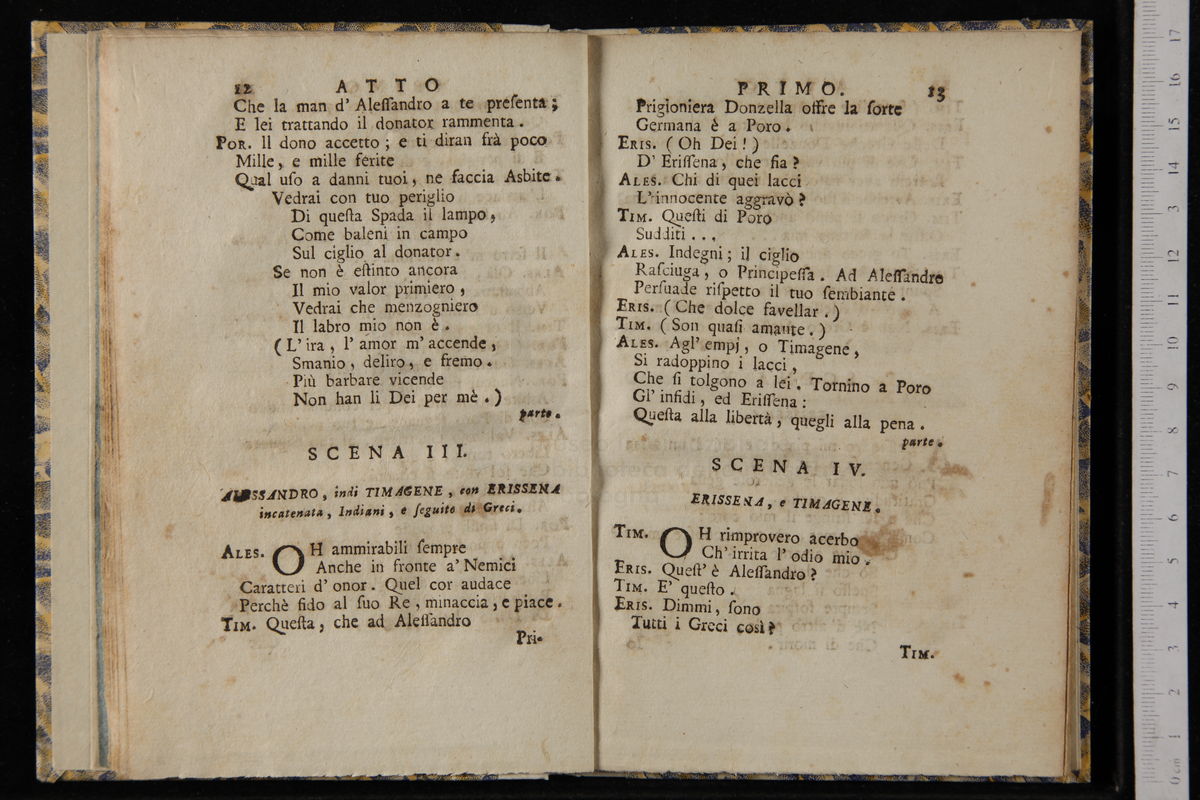 12 ATTO
Che la man d' Aleſſandro a te preſenta;
E lei trattando il donator rammenta.
POR. Il dono accetto; e ti diran frà poco
Mille, e mille ferite
Qual uſo a danni tuoi, ne faccia Asbite.
Vedrai con tuo periglio
Di queſta Spada il lampo,
Come baleni in campo
Sul ciglio al donator.
Se non è eſtinto ancora
Il mio valor primiero,
Vedrai che menzogniero
Il labro mio non è.
(L' ira, l' amor m' accende,
Smanio, deliro, e fremo.
Più barbare vicende
Non han li Dei per mè.)
parte.
SCENA III.
ALESSANDRO, indi TIMAGENE, con ERISSENA
incatenata, Indiani, e ſeguito di Greci.
ALES. OH ammirabili ſempre
Anche in fronte a' Nemici
Caratteri d' onor. Quel cor audace
Perchè fido al ſuo Re, minaccia, e piace.
TIM. Queſta, che ad Aleſſandro
Pri-
PRIMO. 13
Prigioniera Donzella offre la ſorte
Germana è a Poro.
ERIS. (Oh Dei!)
D' Eriſſena, che fia?
ALES. Chi di quei lacci
L' innocente aggravò?
TIM. Queſti di Poro
Sudditi...
ALES. Indegni; il ciglio
Raſciuga, o Principeſſa. Ad Aleſſandro
Perſuade riſpetto il tuo ſembiante.
ERIS. (Che dolce favellar.)
TIM. (Son quaſi amante.)
ALES. Agl' empj, o Timagene,
Si radoppino i lacci,
Che ſi tolgono a lei. Tornino a Poro
Gl' infidi, ed Eriſſena:
Queſta alla libertà, quegli alla pena.
parte.
SCENA IV.
ERISSENA, e TIMAGENE.
TIM. OH rimprovero acerbo
Ch' irrita l' odio mio.
ERIS. Queſt' è Aleſſandro?
TIM. E' queſto.
ERIS. Dimmi, ſono
Tutti i Greci così?
TIM.